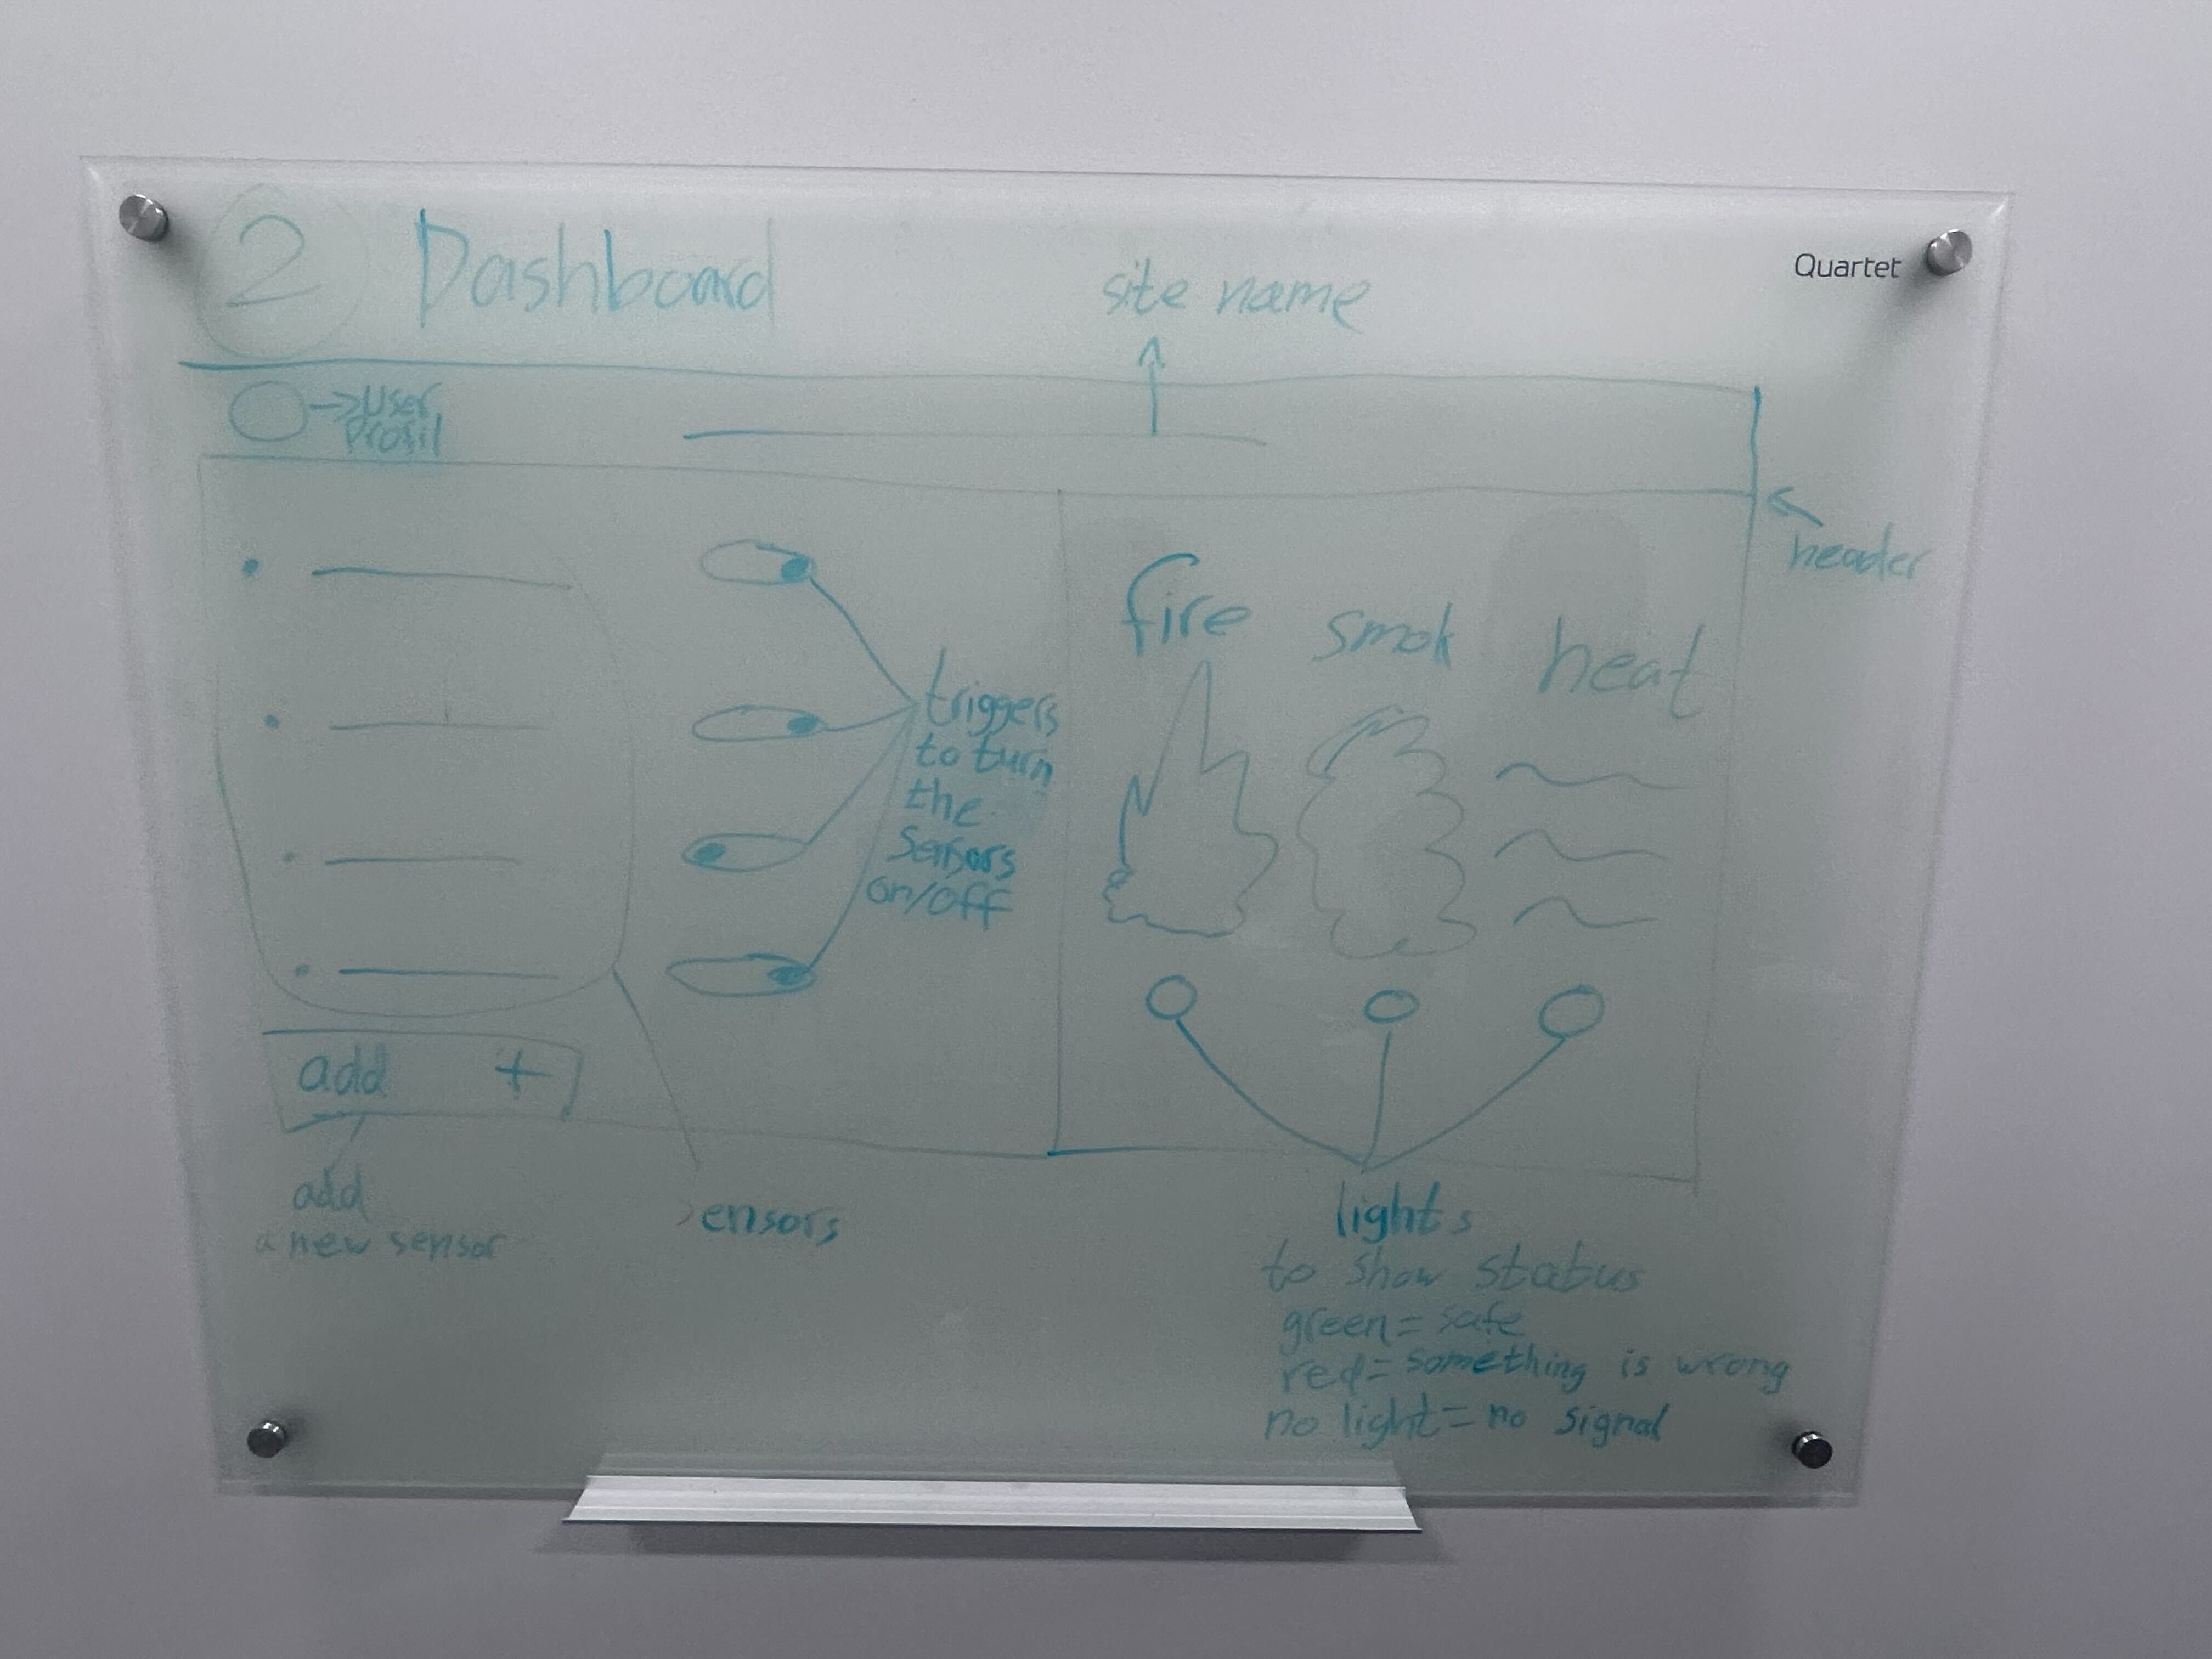 2 Dashboard
site name
Quartet
User
Profil
header
fire smok heat
triggers
to turn
the
sensors
on/off
add +
add
a new sensor
sensors
lights
to show status
green = safe
red = something is wrong
no light = no signal